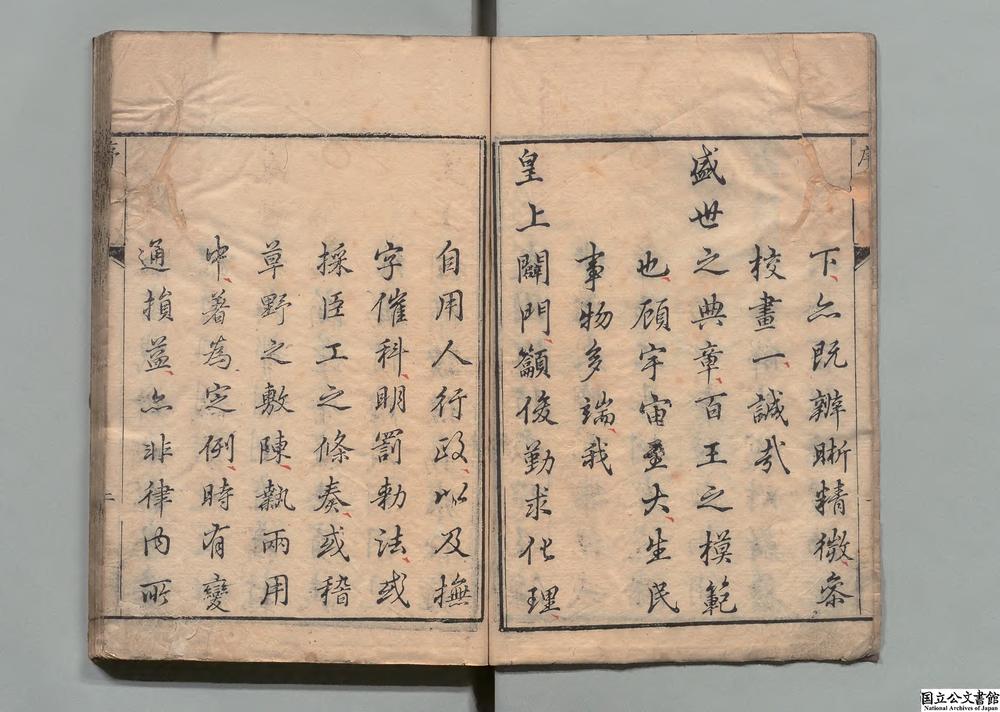 下亦既辨晰精微叅
校畫一誠哉
盛世之典章百王之模範
也顧宇宙至大生民
事物多端我
皇上闢門籲俊勤求化理
自用人行政以及撫
字催科明罰勅法或
採臣工之條奏或稽
草野之敷陳執兩用
中著為定例時有變
通損益亦非律內所
序
一
国立公文書館
National Archives of Japan